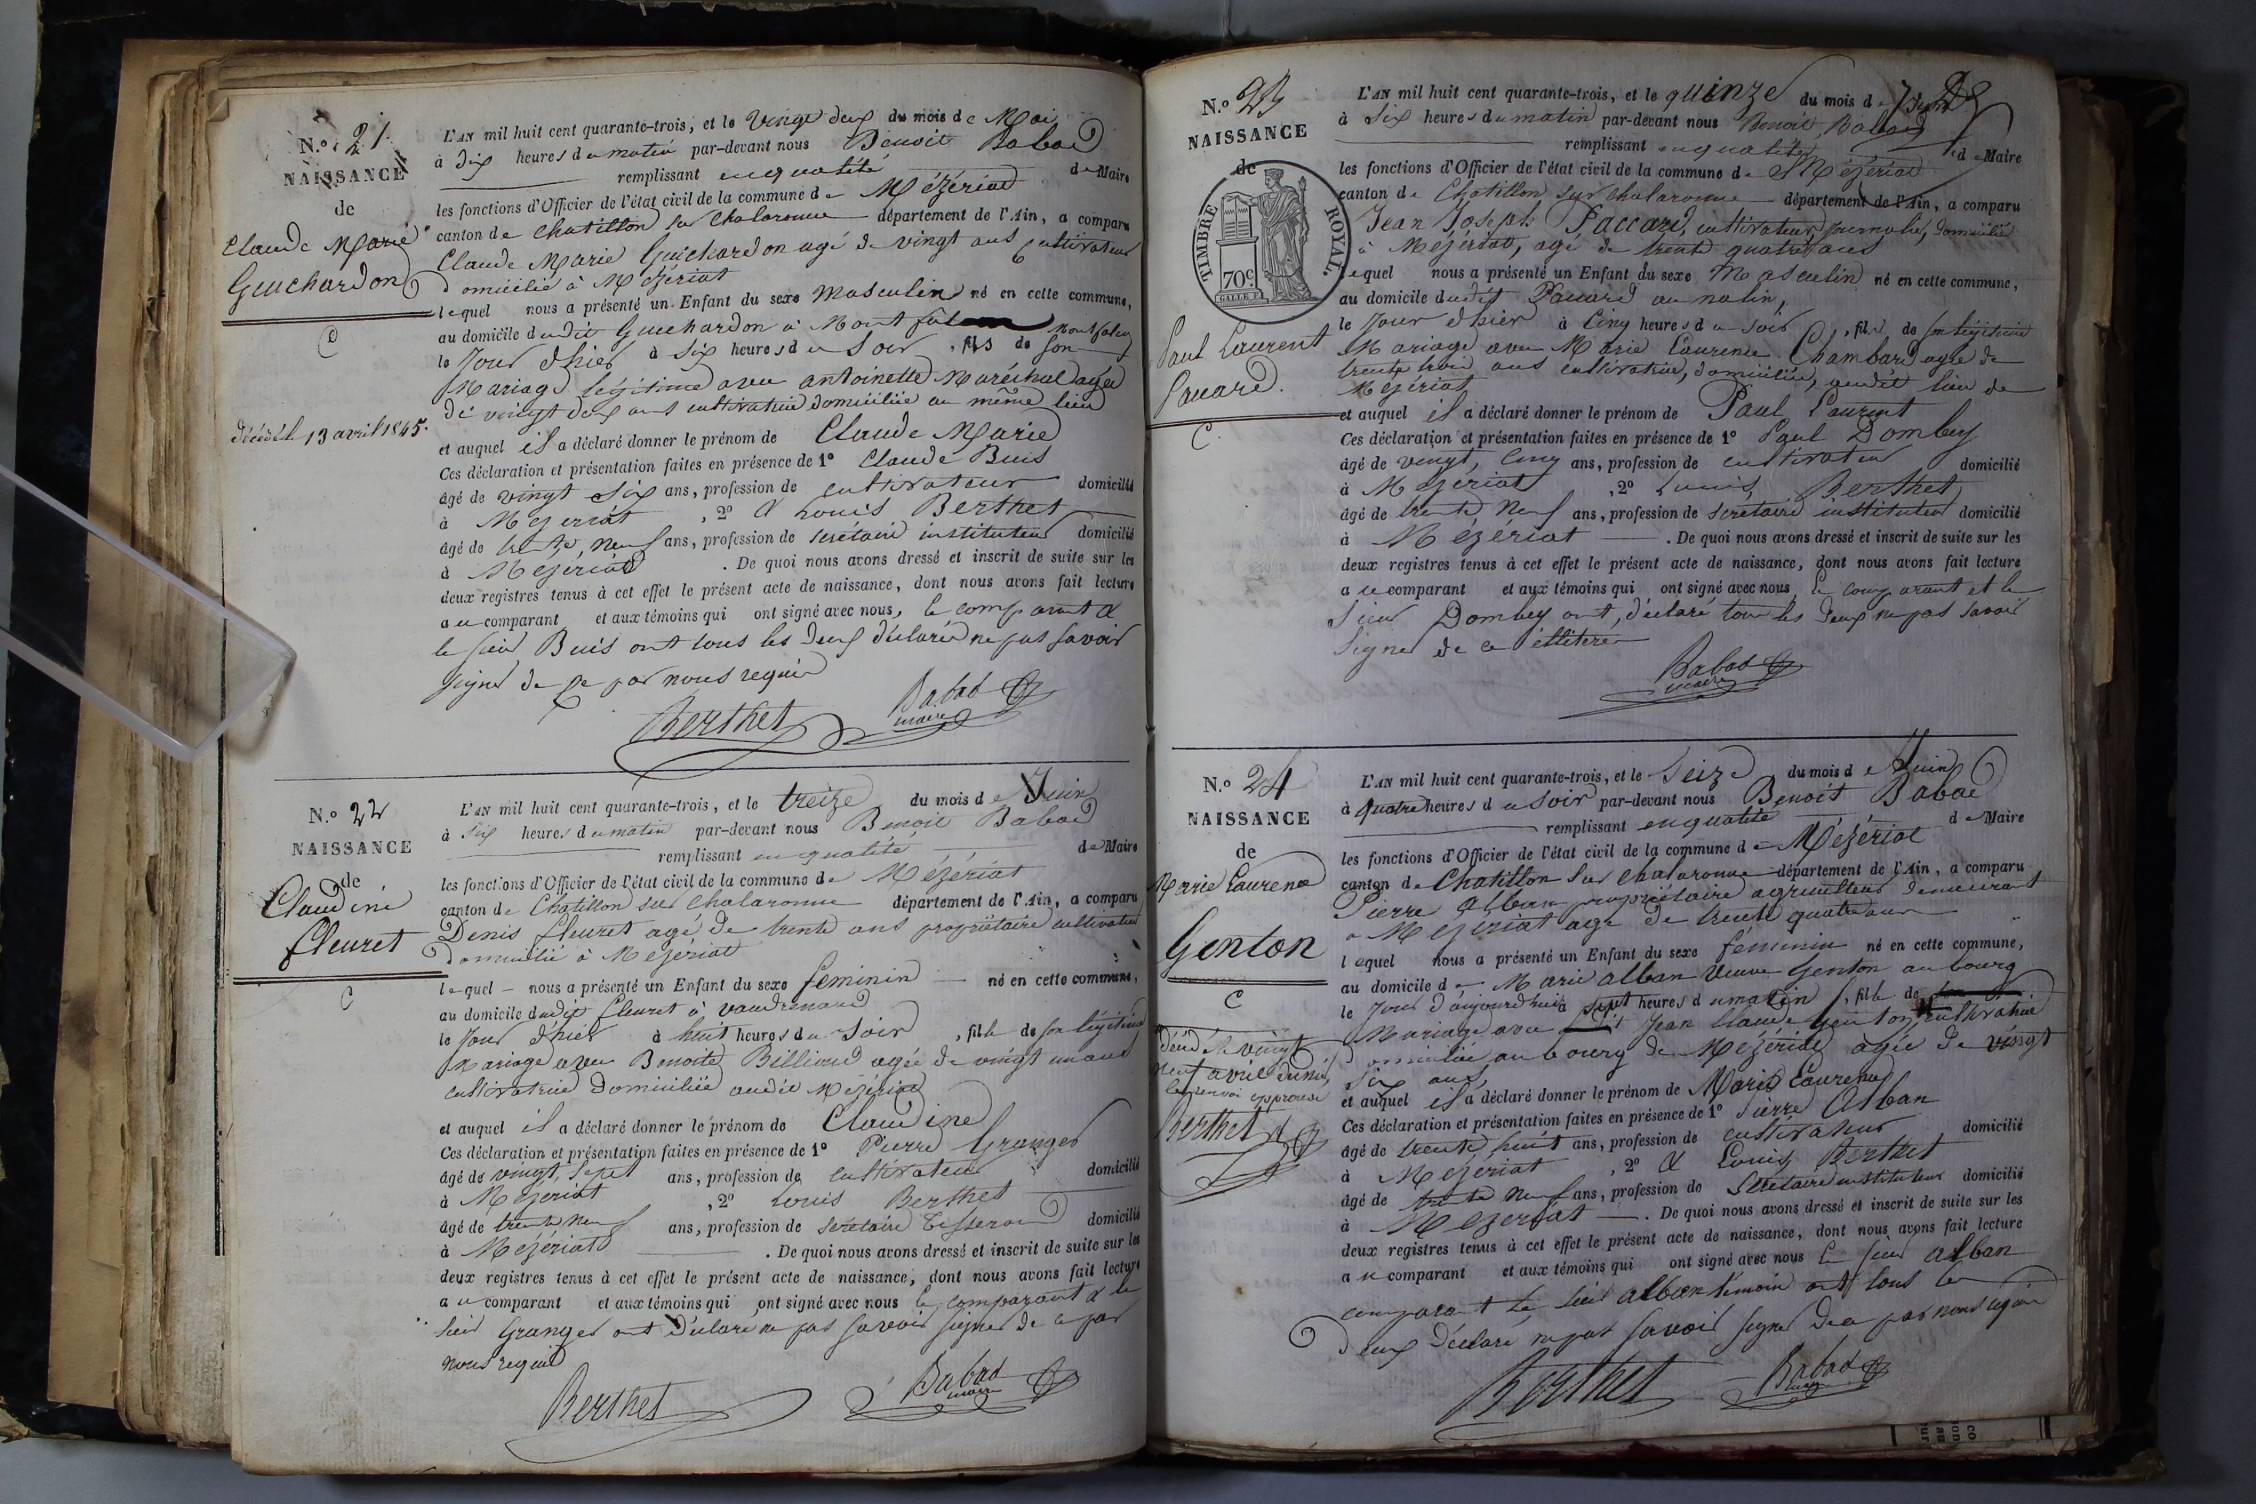 N.º 21
NAISSANCE
de
Claude Marie
Guichardon
C
décédé 13 avril 1845.
L'AN mil huit cent quarante-trois, et le vingt deux du mois de Mai
à dix heures du matin par-devant nous Benoit Babad
remplissant en qualité de Maire
les fonctions d'Officier de l'état civil de la commune de Mézériat
canton de Chatillon sur Chalaronne département de l'Ain, a comparu
Claude Marie Guichardon agé de vingt ans Cultivateur
domicilié à Mézériat
lequel nous a présenté un Enfant du sexe Masculin né en cette commune,
au domicile dudit Guichardon à Montfalcon
le Jour d'hier à six heures du Soir, fils de son
Mariage légitime avec antoinette Maréchal agée
de vingt deux ans cultivatrice domiciliée au même lieu
et auquel il a déclaré donner le prénom de Claude Marie
Ces déclaration et présentation faites en présence de 1º Claude Buis
âgé de vingt six ans, profession de cultivateur domicilié
à Mézériat, 2º & Louis Berthet
âgé de trente, neuf ans, profession de secrétaire instituteur domicilié
à Mezeriat. De quoi nous avons dressé et inscrit de suite sur les
deux registres tenus à cet effet le présent acte de naissance, dont nous avons fait lecture
au comparant et aux témoins qui ont signé avec nous, le comparant &
le sieur Buis ont tous les deux déclaré ne pas savoir
signer de ce par nous requis
Berthet Babad
maire
N.º 22
NAISSANCE
de
Claudine
fleuret
C
L'AN mil huit cent quarante-trois, et le treize du mois de Juin
à six heures du matin par-devant nous Benoit Babad
remplissant en qualité de Maire
les fonctions d'Officier de l'état civil de la commune de Mézériat
canton de Chatillon sur Chalaronne département de l'Ain, a comparu
Denis fleuret agé de trente ans propriétaire cultivateur
domicilié à Mézériat
lequel nous a présenté un Enfant du sexe feminin né en cette commune,
au domicile dudit fleuret à vaudrenard
le Jour d'hier à huit heures du Soir, fille de son légitime
Mariage avec Benoite Billioud agée de vingt un ans
cultivatrice domiciliée audit Mézériat
et auquel il a déclaré donner le prénom de Claudine
Ces déclaration et présentation faites en présence de 1º Pierre Granger
âgé de vingt, sept ans, profession de cultivateur domicilié
à Mézériat, 2º Louis Berthet
âgé de trente neuf ans, profession de secretaire domicilié
à Mézériat. De quoi nous avons dressé et inscrit de suite sur les
deux registres tenus à cet effet le présent acte de naissance, dont nous avons fait lecture
au comparant et aux témoins qui ont signé avec nous le comparant & le
sieur Granger ont déclaré ne pas savoir signer de ce par
nous requis
Berthet Babad
maire
N.º 23
NAISSANCE
de
TIMBRE ROYAL.
70c.
Paul Laurent
Paccard.
C
L'AN mil huit cent quarante-trois, et le quinze du mois de Juin
à Six heures du matin par-devant nous Benoit Babad
remplissant en qualité de Maire
les fonctions d'Officier de l'état civil de la commune de Mézériat
canton de Chatillon sur Chalaronne département de l'Ain, a comparu
Jean Joseph Paccard, cultivateur, domicilié
à Mézériat, agé de trente quatre ans
lequel nous a présenté un Enfant du sexe Masculin né en cette commune,
au domicile dudit Paccard
le Jour d'hier à Cinq heures du Soir, fils de son légitime
Mariage avec Marie Laurence Chambard agée de
trente trois ans cultivatrice, domiciliée, audit lieu de
Mézériat
et auquel il a déclaré donner le prénom de Paul Laurent
Ces déclaration et présentation faites en présence de 1º Paul Dombey
âgé de vingt, Cinq ans, profession de cultivateur domicilié
à Mézériat, 2º Louis Berthet
âgé de trente neuf ans, profession de secretaire instituteur domicilié
à Mézériat. De quoi nous avons dressé et inscrit de suite sur les
deux registres tenus à cet effet le présent acte de naissance, dont nous avons fait lecture
au comparant et aux témoins qui ont signé avec nous le comparant et le
Sieur Dombey ont déclaré tous les deux ne pas savoir
signer de ce
Babad
maire
N.º 24
NAISSANCE
de
Marie Laurence
Genton
C
décédé le vingt
neuf avril
le renvoi approuvé
Berthet
L'AN mil huit cent quarante-trois, et le Seize du mois de Juin
à quatre heures du soir par-devant nous Benoit Babad
remplissant en qualité de Maire
les fonctions d'Officier de l'état civil de la commune de Mézériat
canton de Chatillon sur Chalaronne département de l'Ain, a comparu
Pierre Alban propriétaire agriculteur demeurant
à Mézériat agé de trente quatre ans
lequel nous a présenté un Enfant du sexe féminin né en cette commune,
au domicile de Marie alban Veuve Genton au bourg
le Jour d'aujourd'hui à sept heures du matin, fille de
Mariage avec Jean Claude Genton, cultivatrice
domiciliée au bourg de Mézériat agée de vingt
six ans
et auquel il a déclaré donner le prénom de Marie Laurence
Ces déclaration et présentation faites en présence de 1º Pierre Alban
âgé de trente huit ans, profession de cultivateur domicilié
à Mézériat, 2º & Louis Berthet
âgé de trente neuf ans, profession de Secretaire instituteur domicilié
à Mézériat. De quoi nous avons dressé et inscrit de suite sur les
deux registres tenus à cet effet le présent acte de naissance, dont nous avons fait lecture
au comparant et aux témoins qui ont signé avec nous le sieur alban
comparant le sieur alban témoin ont tous les
deux déclaré ne pas savoir signer de ce par nous requis
Berthet Babad
maire